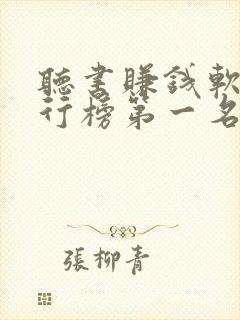 聽書賺錢軟
行榜第一名
張柳青